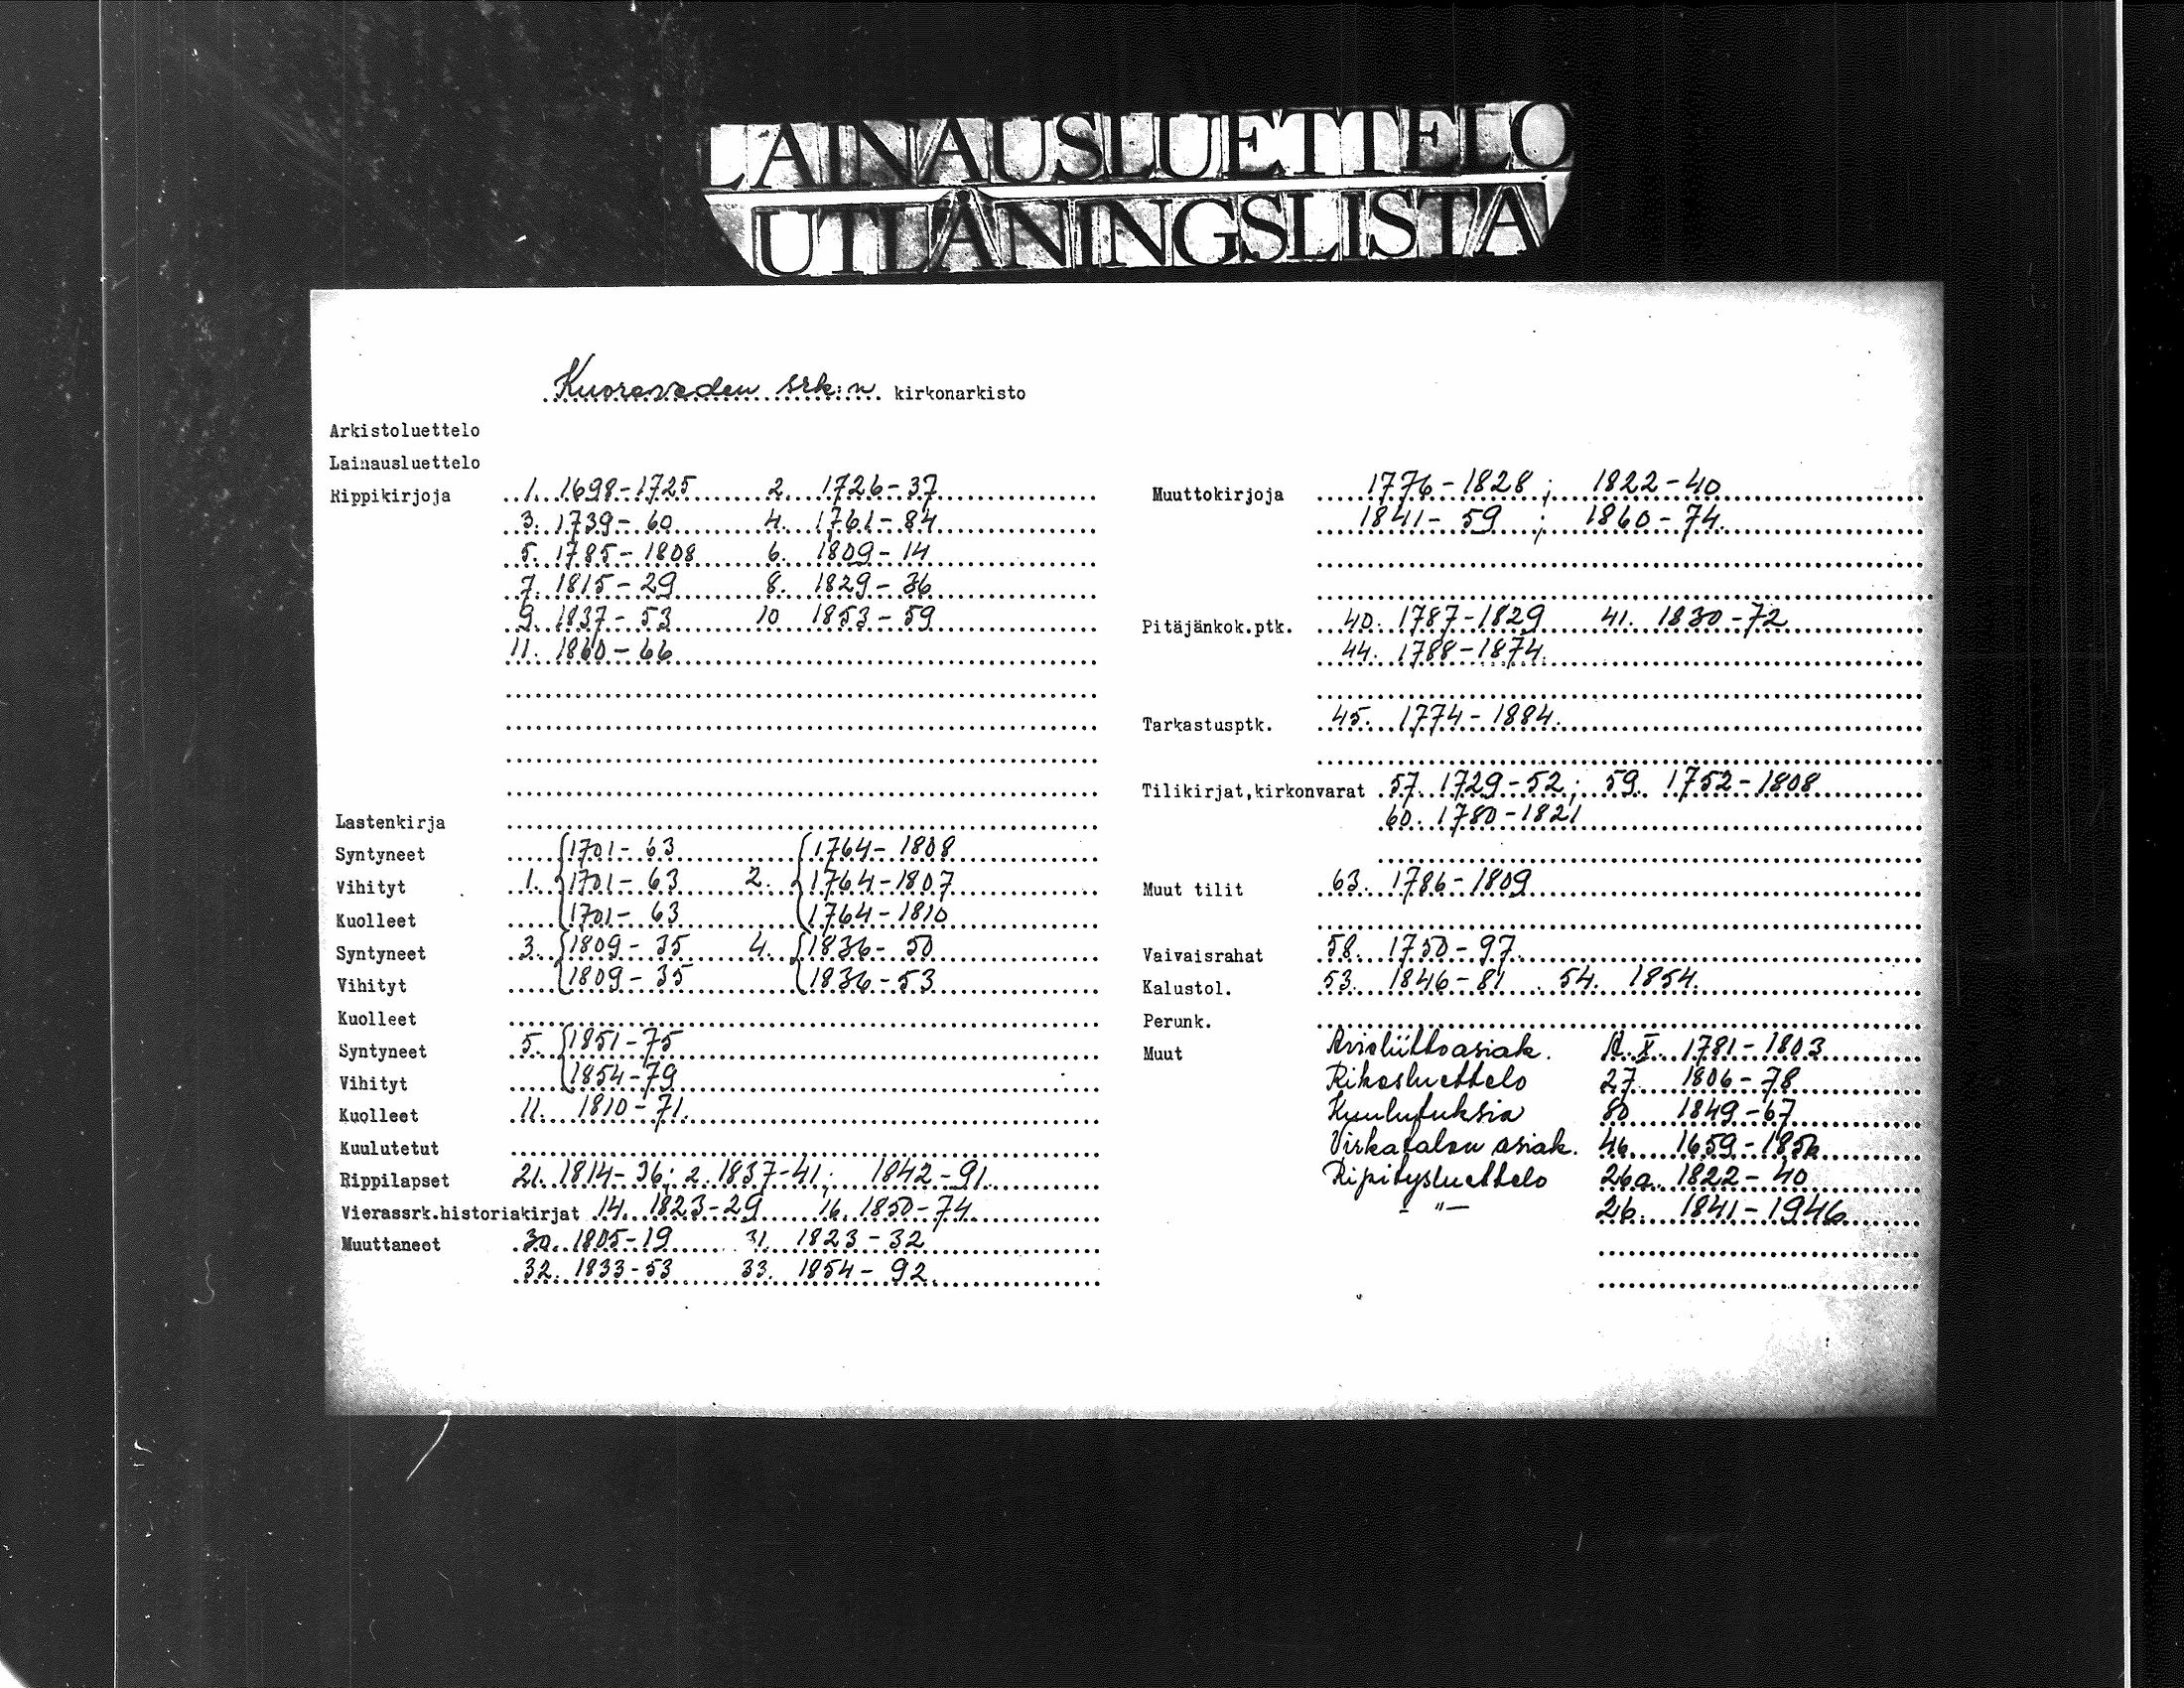 LAINAUSLUETTELO
UTLÅNINGSLISTA
Kuoreveden srk:n kirkonarkisto
Arkistoluettelo
Lainausluettelo
Rippikirjoja 1. 1698-1725 2. 1726-37
3. 1739-60 4. 1761-84
5. 1785-1808 6. 1809-14
7. 1815-29 8. 1829-36
9. 1837-53 10 1853-59
11. 1860-66
Lastenkirja
Syntyneet 1701-63 1764-1808
Vihityt 1. 1701-63 2. 1764-1807
Kuolleet 1701-63 1764-1810
Syntyneet 3. 1809-35 4. 1836-50
Vihityt 1809-35 1836-53
Kuolleet
Syntyneet 5. 1851-75
Vihityt 1854-79
Kuolleet 11. 1810-71.
Kuulutetut
Rippilapset 21. 1814-36; 2. 1837-41; 1842-91.
Vierassrk.historiakirjat 14. 1823-29 16. 1850-74
Muuttaneet 30. 1805-19 31. 1823-32
32. 1833-53 33. 1854-92
Muuttokirjoja 1776-1828; 1822-40
1841-59; 1860-74.
Pitäjänkok.ptk. 40. 1787-1829 41. 1830-72
44. 1788-1874.
Tarkastusptk. 45. 1774-1884.
Tilikirjat,kirkonvarat 57. 1729-52; 59. 1752-1808
60. 1780-1821
Muut tilit 63. 1786-1809
Vaivaisrahat 58. 1750-97
Kalustol. 53. 1846-81 54. 1854.
Perunk.
Muut Avioliittoasiak. X. 1781-1803
Rikosluettelo 27. 1806-78
Kuulutuksia 80 1849-67
Virkatalon asiak. 46. 1659-1856
Ripitysluettelo 26a. 1822-40
-"- 26. 1841-1946